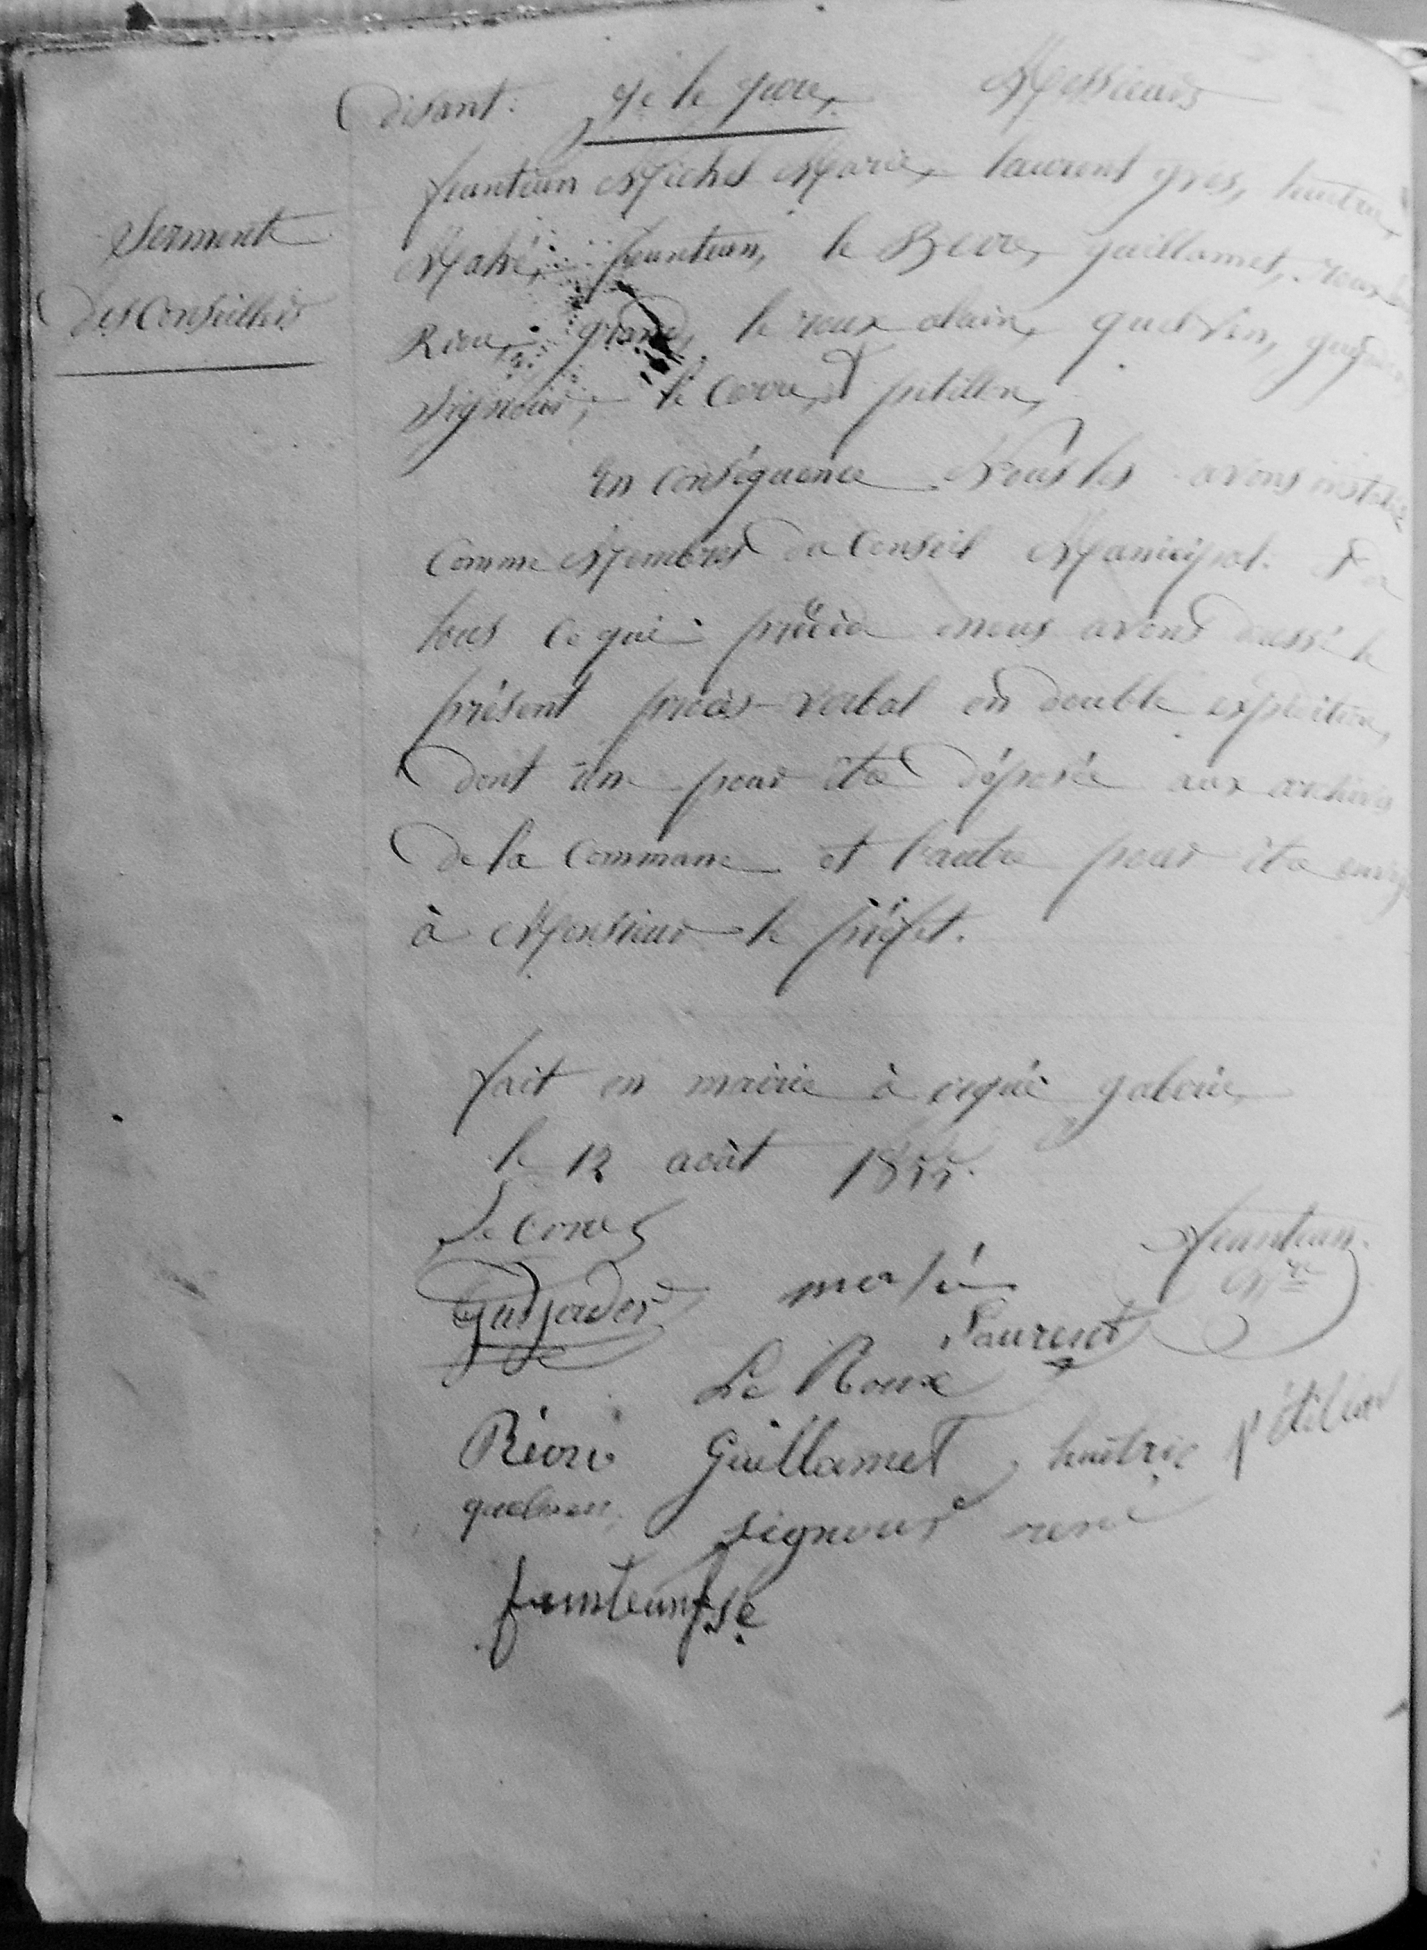 disant: je le jure, Messieurs
feunteun Michel Marie, laurent yves, huitric,
Serment
Mahé, feunteun, le Berre, guillamet,
des Conseillers
Riou, le roux alain, quelven,
Signour, le Corre, et pétillon,
En conséquence Nous les avons installé
Comme Membres du Conseil Municipal. De
tous ce qui précède nous avons dressé le
présent procès-verbal en double expédition,
dont une pour être déposée aux archives
de la Commune et l'autre pour être envoyé
à Monsieur le préfet.
fait en mairie à ergué gabéric,
le 12 août 1855.
Le Corre
feunteun
Mre
mahé
Laurent
Le Roux
pétillon
Riou Guillamet huitric
quelven signour rené
feunteun